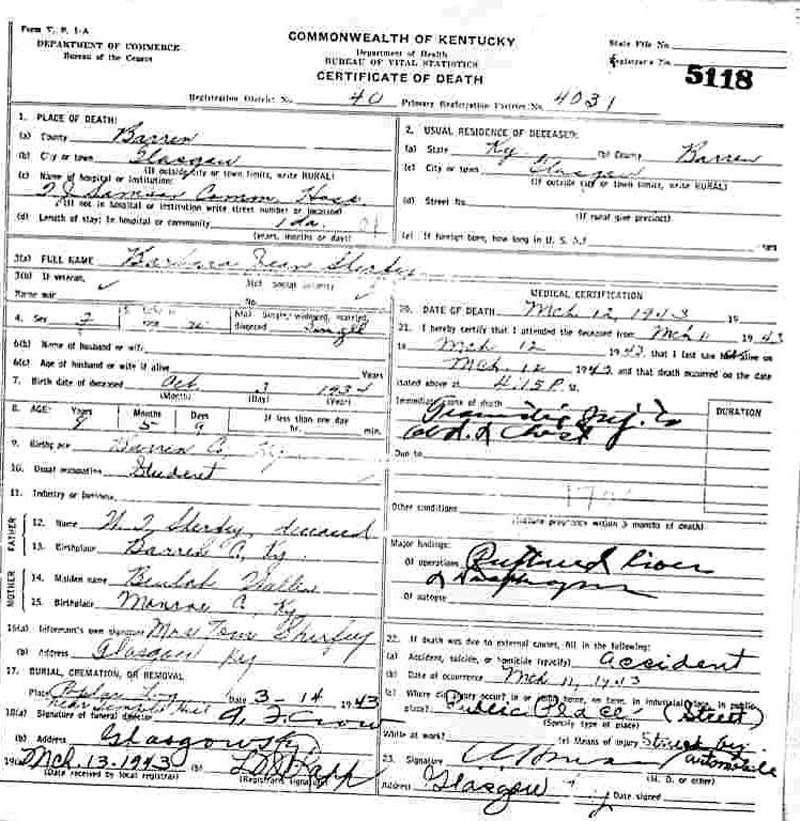 Form V. S. 1-A
DEPARTMENT OF COMMERCE
Bureau of the Census
COMMONWEALTH OF KENTUCKY
Department of Health
BUREAU OF VITAL STATISTICS
CERTIFICATE OF DEATH
State File No.
Registrar's No. 5118
Registration District No. 40 Primary Registration District No. 4031
1. PLACE OF DEATH:
(a) County Barren
(b) City or town Glasgow
(If outside city or town limits, write RURAL)
(c) Name of hospital or institution:
T J Samson Comm. Hosp.
(If not in hospital or institution write street number or location)
(d) Length of stay: In hospital or community 1 da.
(years, months or days)
2. USUAL RESIDENCE OF DECEASED:
(a) State Ky. (b) County Barren
(c) City or town Glasgow
(If outside city or town limits, write RURAL)
(d) Street No.
(If rural give precinct)
(e) If foreign born, how long in U. S. A.? years
3(a) FULL NAME Barbara Jean
3(b) If veteran, 3(c) Social Security
Name war No.
4. Sex 7 6(a) Single, widowed, married, divorced Single
6(b) Name of husband or wife
6(c) Age of husband or wife if alive Years
7. Birth date of deceased Oct 3
(Month) (Day) (Year)
8. AGE: Years Months Days If less than one day
9 5 9 hr. min.
9. Birthplace Barren Co, Ky
10. Usual occupation Student
11. Industry or business
FATHER
12. Name deceased
13. Birthplace Barren Co, Ky
MOTHER
14. Maiden name Beulah
15. Birthplace Monroe Co, Ky
16(a) Informant's own signature Mrs Tom
(b) Address Glasgow Ky
17. BURIAL, CREMATION, OR REMOVAL
Place Date 3-14 1943
18(a) Signature of funeral director
(b) Address Glasgow Ky.
19(a) Mch. 13-1943 (b)
(Date received by local registrar) (Registrar's signature)
MEDICAL CERTIFICATION
20. DATE OF DEATH Mch 12, 1943 19
21. I hereby certify that I attended the deceased from Mch 11 1943
to Mch 12 1943, that I last saw her alive on
Mch. 12 1943 and that death occurred on the date
stated above at 4:15 P. M.
Immediate cause of death DURATION
Traumatic Inj. to
Abd. & Chest
Due to
Other conditions
(Include pregnancy within 3 months of death)
Major findings:
Of operations Ruptured liver
& Diaphragm
Of autopsy
22. If death was due to external causes, fill in the following:
(a) Accident, suicide, or homicide (specify) Accident
(b) Date of occurrence Mch 11, 1943
(c) Where did injury occur? in or about home, on farm, in industrial place, in public
place? Public Place (Street)
(Specify type of place)
While at work? (e) Means of injury Struck by
automobile
23. Signature (M. D. or other)
Address Glasgow Date signed